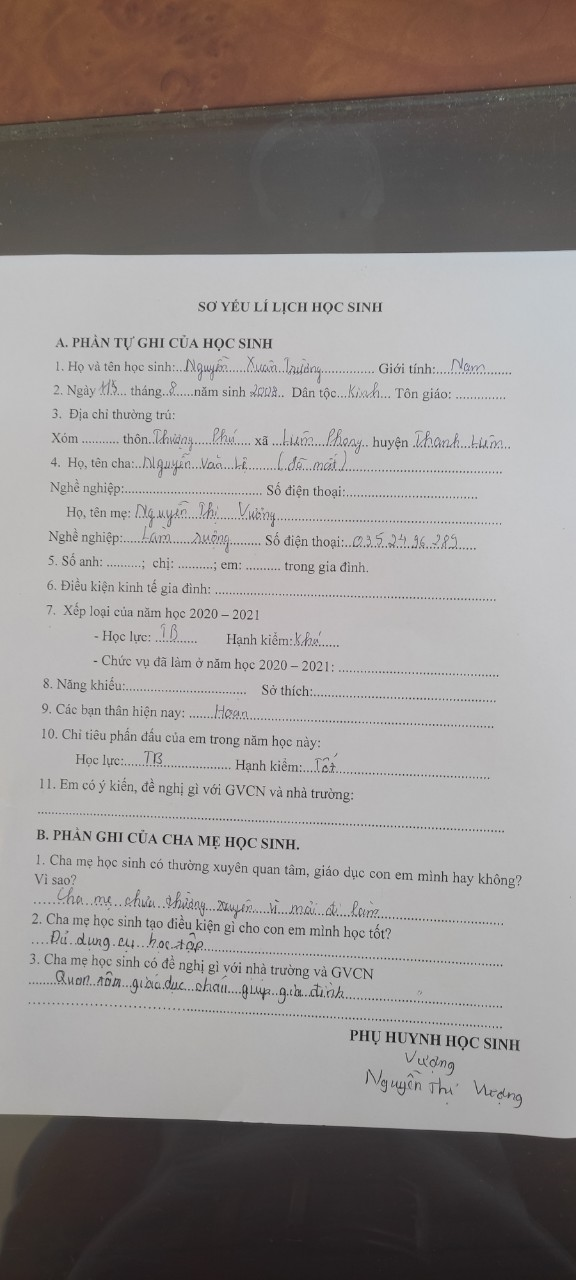 SƠ YẾU LÍ LỊCH HỌC SINH
A. PHẦN TỰ GHI CỦA HỌC SINH
1. Họ và tên học sinh:...Nguyễn Xuân Trường............ Giới tính:...Nam......
2. Ngày ... tháng..8......năm sinh 2008.. Dân tộc...Kinh... Tôn giáo: ..............
3. Địa chỉ thường trú:
Xóm .......... thôn..Thượng Phú xã ...Liêm...Phong.. huyện Thanh Liêm..
4. Họ, tên cha:..Nguyễn Văn Lê (đã mất)..............................
Nghề nghiệp:..................................... Số điện thoại:...................................
Họ, tên mẹ: Nguyễn Thị Vượng..............................................
Nghề nghiệp:....Làm ruộng......... Số điện thoại:..035.24 96.289.....
5. Số anh: .........; chị: .........; em: ......... trong gia đình.
6. Điều kiện kinh tế gia đình: ...........................................................................
7. Xếp loại của năm học 2020 – 2021
- Học lực: ..TB...... Hạnh kiểm: Khá......
- Chức vụ đã làm ở năm học 2020 – 2021: ...........................................
8. Năng khiếu:................................. Sở thích:..................................................
9. Các bạn thân hiện nay: ......Hoan..................................................................
10. Chỉ tiêu phấn đấu của em trong năm học này:
Học lực:.....TB.................. Hạnh kiểm:...Tốt..........................................
11. Em có ý kiến, đề nghị gì với GVCN và nhà trường:
..............................................................................................................................
B. PHẦN GHI CỦA CHA MẸ HỌC SINH.
1. Cha mẹ học sinh có thường xuyên quan tâm, giáo dục con em mình hay không?
Vì sao?
......Cha mẹ chưa thường xuyên vì mải đi làm..............................
2. Cha mẹ học sinh tạo điều kiện gì cho con em mình học tốt?
....Đủ dụng cụ học tập..............................................................................
3. Cha mẹ học sinh có đề nghị gì với nhà trường và GVCN
......Quan tâm giáo dục cháu giúp gia đình.......................................
..............................................................................................................................
PHỤ HUYNH HỌC SINH
Vượng
Nguyễn Thị Vượng